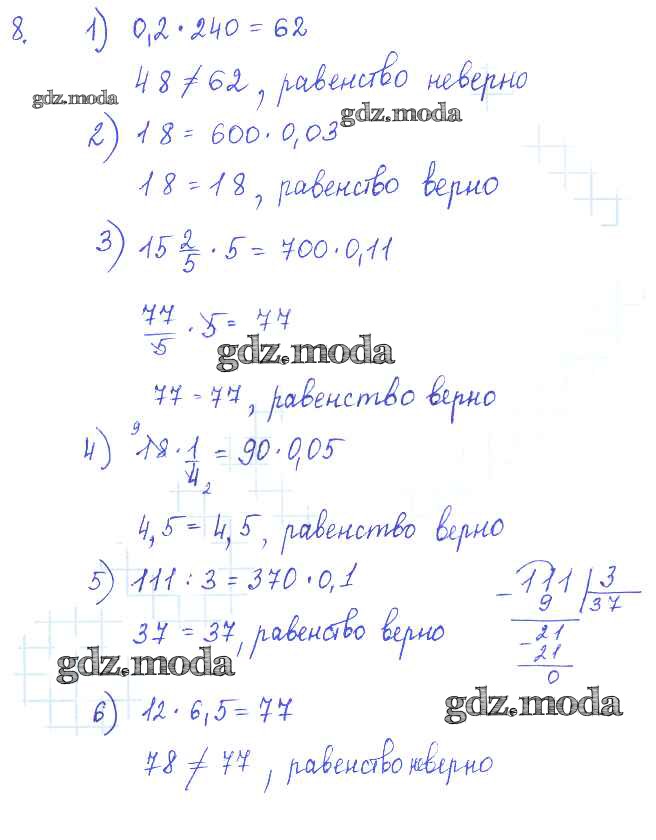 8. 1) 0,2 · 240 = 62
48 ≠ 62, равенство неверно
gdz.moda
gdz.moda
2) 18 = 600 · 0,03
18 = 18, равенство верно
3) 15 2/5 · 5 = 700 · 0,11
77/5 · 5 = 77
gdz.moda
77 = 77, равенство верно
4) 18 9 · 1/4 2 = 90 · 0,05
4,5 = 4,5, равенство верно
5) 111 : 3 = 370 · 0,1
37 = 37, равенство верно
- 111 | 3
9 37
- 21
21
0
gdz.moda
gdz.moda
6) 12 · 6,5 = 77
78 ≠ 77, равенство неверно